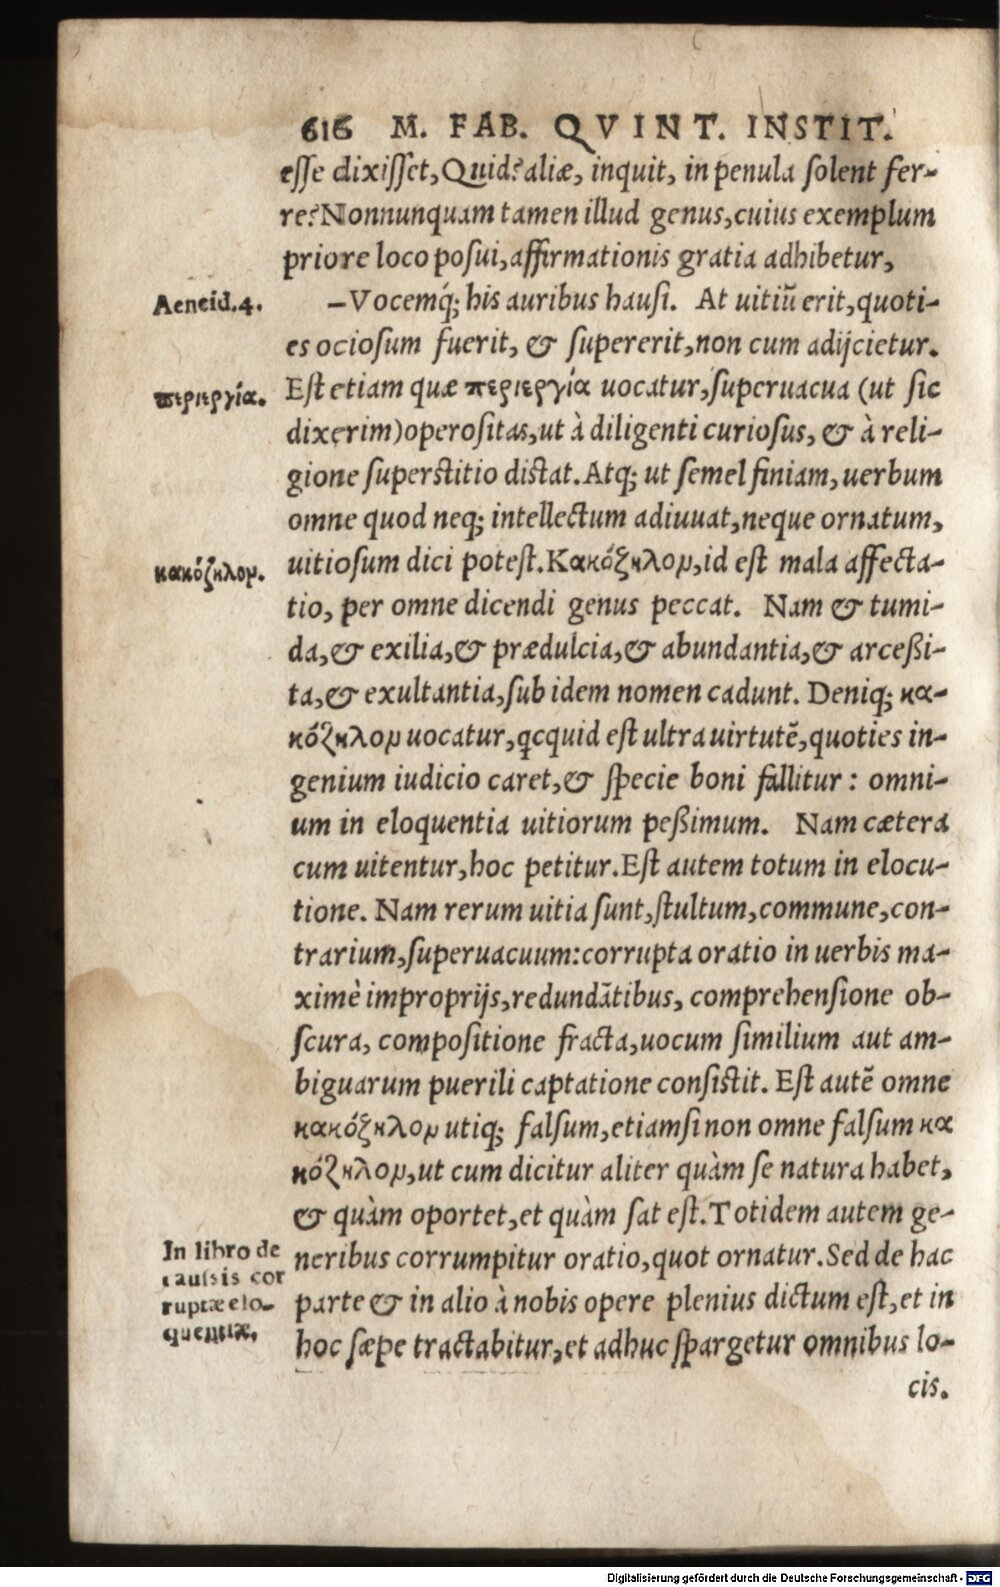 616 M. FAB. QVINT. INSTIT.
esse dixisset, Quid? aliæ, inquit, in penula solent fer-
re? Nonnunquam tamen illud genus, cuius exemplum
priore loco posui, affirmationis gratia adhibetur,
Aeneid.4.
—Vocemq́; his auribus hausi. At uitiũ erit, quoti-
es ociosum fuerit, & supererit, non cum adijcietur.
περιεργία.
Est etiam quæ περιεργία uocatur, superuacua (ut sic
dixerim) operositas, ut à diligenti curiosus, & à reli-
gione superstitio distat. Atq; ut semel finiam, uerbum
omne quod neq; intellectum adiuuat, neque ornatum,
κακόζηλον.
uitiosum dici potest. Κακόζηλον, id est mala affecta-
tio, per omne dicendi genus peccat. Nam & tumi-
da, & exilia, & prædulcia, & abundantia, & arceßi-
ta, & exultantia, sub idem nomen cadunt. Deniq; κα-
κόζηλον uocatur, qcquid est ultra uirtutẽ, quoties in-
genium iudicio caret, & specie boni fallitur: omni-
um in eloquentia uitiorum peßimum. Nam cætera
cum uitentur, hoc petitur. Est autem totum in elocu-
tione. Nam rerum uitia sunt, stultum, commune, con-
trarium, superuacuum: corrupta oratio in uerbis ma-
ximè improprijs, redundãtibus, comprehensione ob-
scura, compositione fracta, uocum similium aut am-
biguarum puerili captatione consistit. Est autẽ omne
κακόζηλον utiq; falsum, etiamsi non omne falsum κα
κόζηλον, ut cum dicitur aliter quàm se natura habet,
& quàm oportet, et quàm sat est. Totidem autem ge-
In libro de
caussis cor
ruptæ elo-
quentiæ.
neribus corrumpitur oratio, quot ornatur. Sed de hac
parte & in alio à nobis opere plenius dictum est, et in
hoc sæpe tractabitur, et adhuc spargetur omnibus lo-
cis.
Digitalisierung gefördert durch die Deutsche Forschungsgemeinschaft - DFG